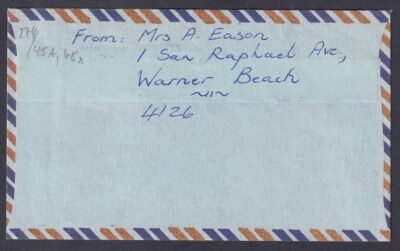 From: Mrs A. Eason
1 San Raphael Ave,
Warner Beach
4126